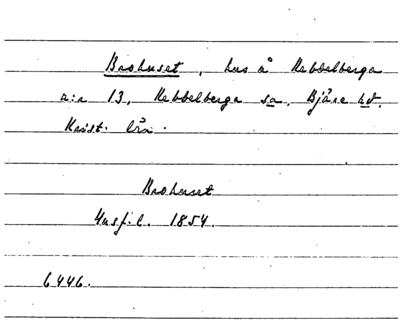 Brohuset, hus å Hebbelberga
n:r 13, Hebbelberga sn. Bjäre hd.
Krist. län.
Brohuset
Husf.l. 1854.
6446.